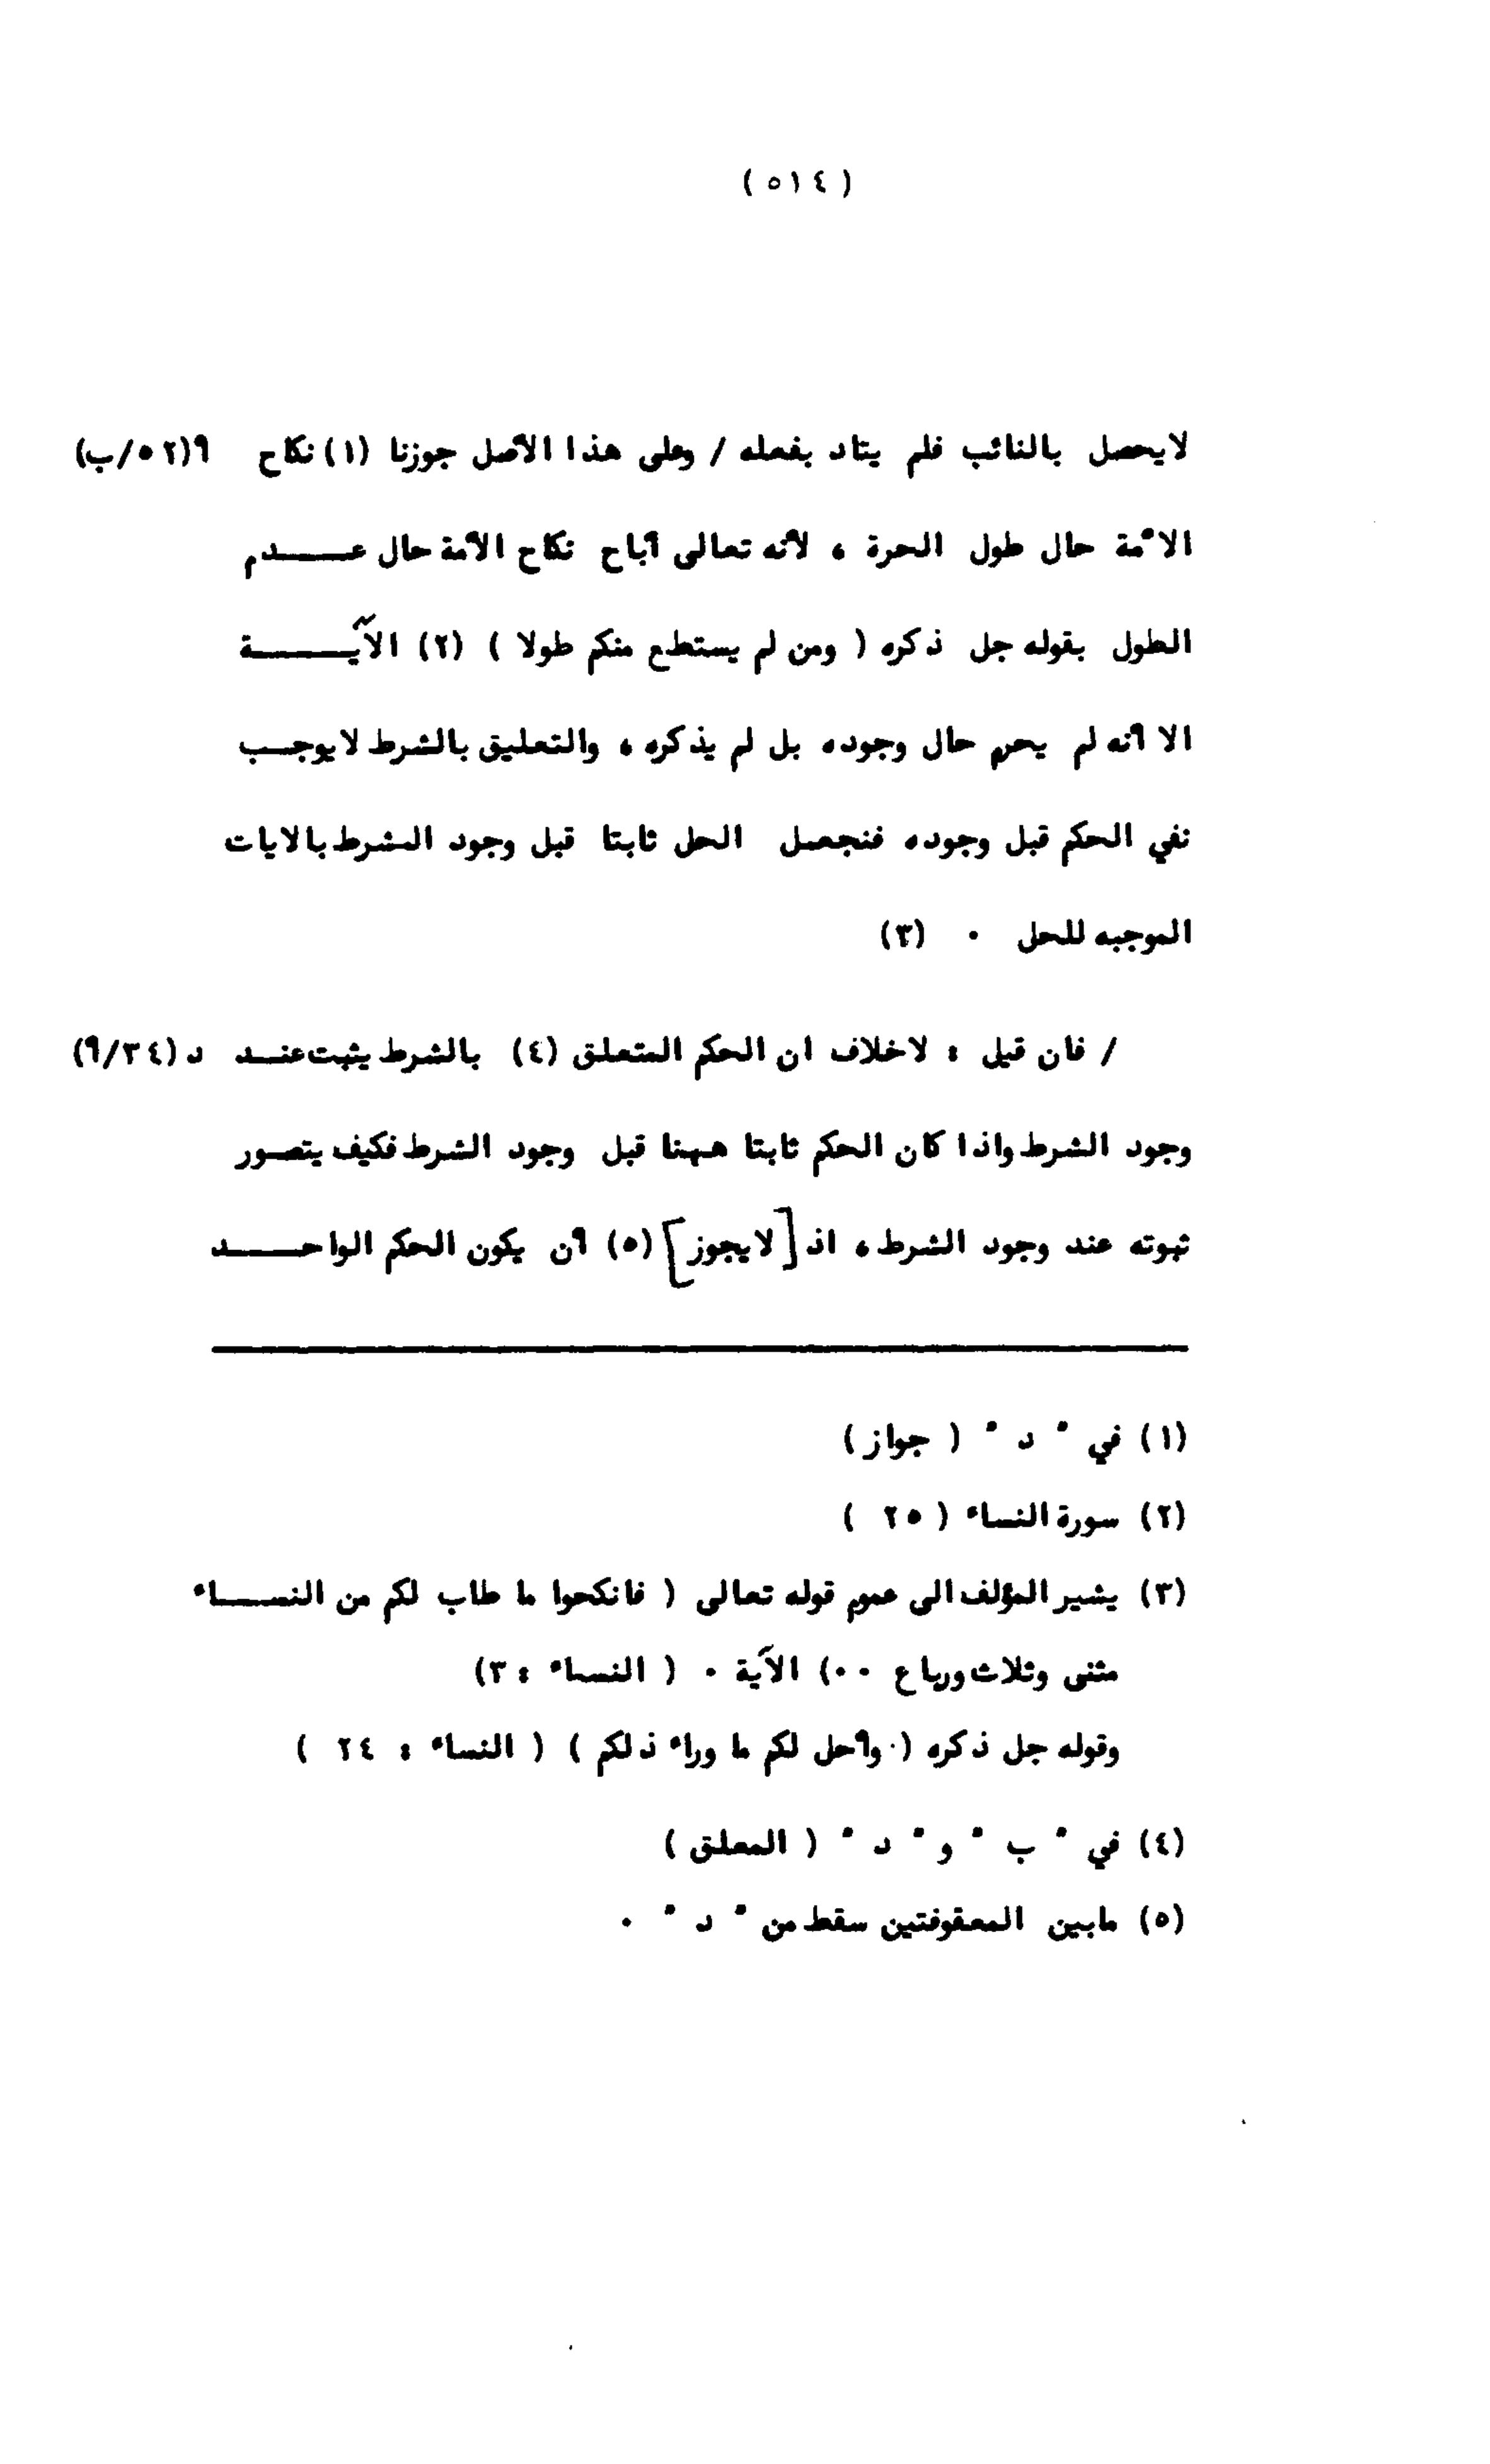 ( ٥١٤ )
لايحصل بالنائب فلم يتاد بفعله / وعلى هذا الأصل جوزنا (١) نكاح أ(٥٢/ب)
الأمة حال طول الحرة ، لأنه تعالى أباح نكاح الأمة حال عـــــدم
الطول بقوله جل ذكره ( ومن لم يستطع منكم طولا ) (٢) الآيـــــة
الا أنه لم يحرم حال وجوده بل لم يذكره ، والتعليق بالشرط لايوجــب
نفي الحكم قبل وجوده فنجعل الحل ثابتا قبل وجود الشرط بالايات
الموجبه للحل ٠ (٣)
/ فان قيل : لاخلاف ان الحكم المتعلق (٤) بالشرط يثبت عنــد د (٣٤/أ)
وجود الشرط واذا كان الحكم ثابتا ههنا قبل وجود الشرط فكيف يتصــور
ثبوته عند وجود الشرط ، اذ [لايجوز] (٥) أن يكون الحكم الواحـــــد
(١) في " د " ( جواز )
(٢) سورة النساء ( ٢٥ )
(٣) يشير المؤلف الى عموم قوله تعالى ( فانكحوا ما طاب لكم من النســـاء
مثنى وثلاث ورباع ٠٠) الآية ٠ ( النساء : ٣)
وقوله جل ذكره (٠ وأحل لكم ما وراء ذلكم ) ( النساء : ٢٤ )
(٤) في " ب " و " د " ( المعلق )
(٥) مابين المعقوفتين سقط من " د " ٠